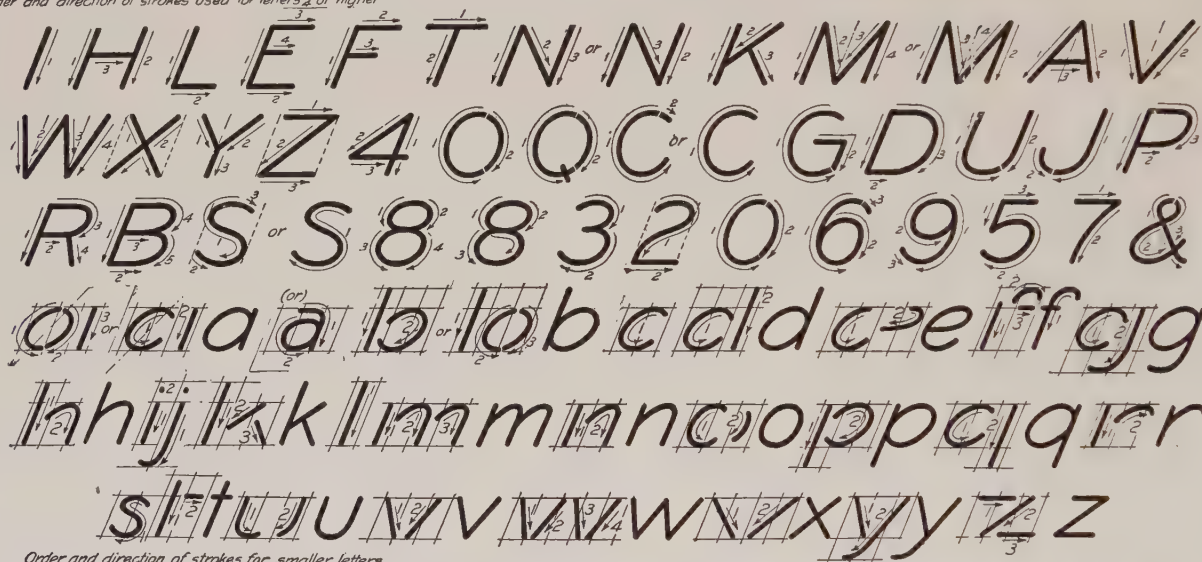 and direction of strokes used for letters or higher
I H L E F T N or N K M or M A V
W X Y Z 4 O Q C or C G D U J P
R B S or S 8 8 3 2 0 6 9 5 7 &
a or a (or) a b or b b c d d e e f f g g
h h i j k k l m m n n o o p p q q r r
s t t u u v v w w x x y y z z
Order and direction of strokes for smaller letters